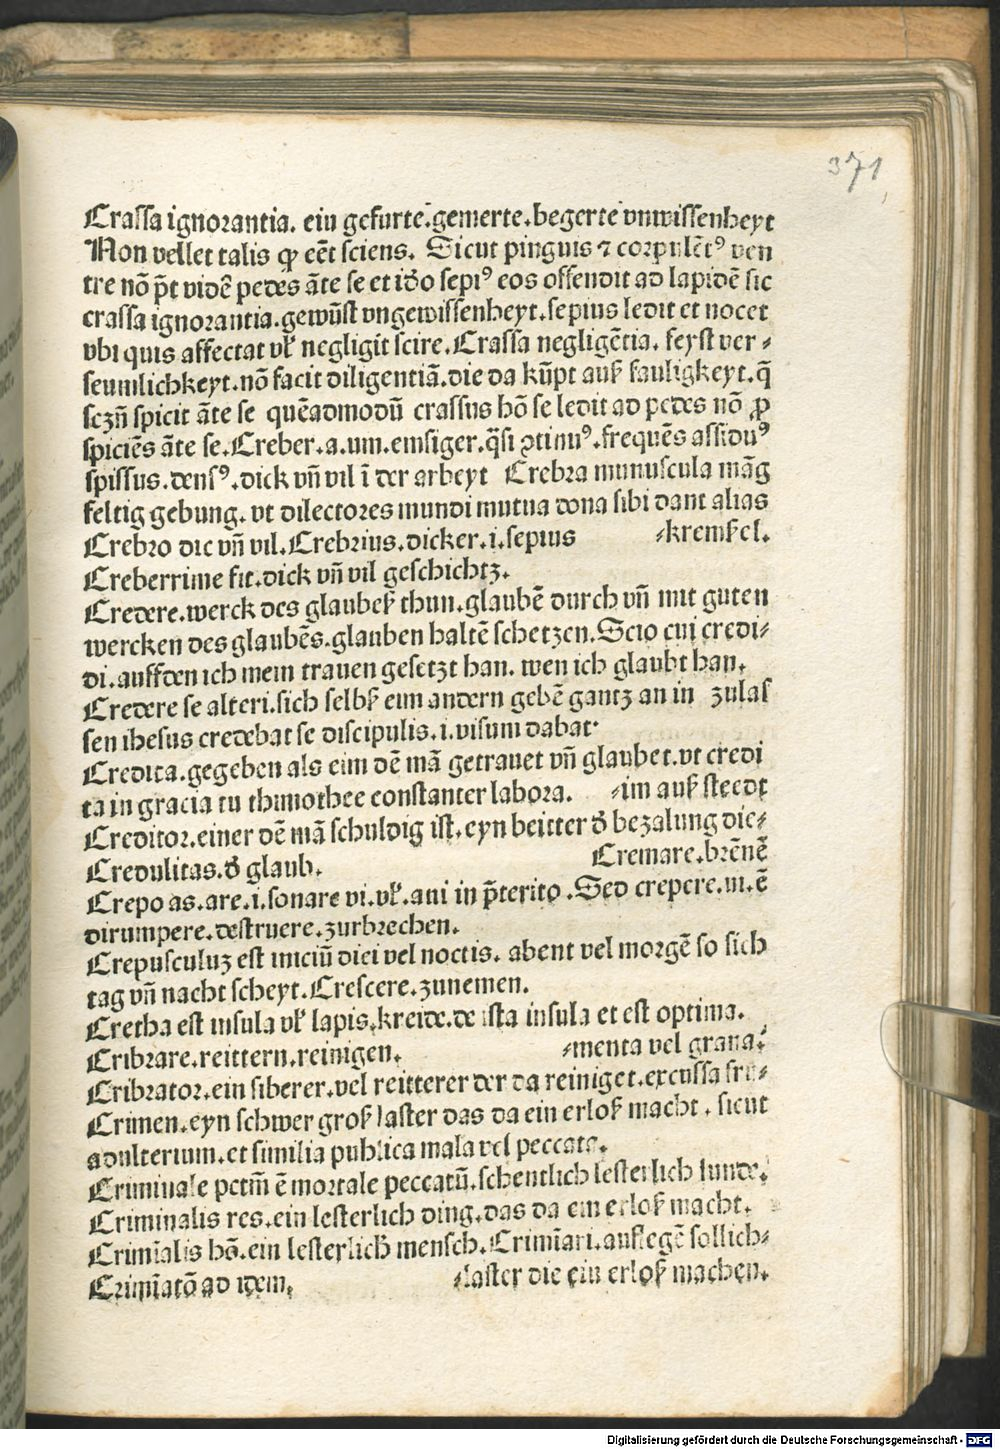 371
Crassa ignorantia. ein gefurte.gemerte.begerte vnwissenheyt
Non vellet talis ꝙ eēt sciens. Sicut pinguis ⁊ corpulēt⁹ ven
tre nō p̄t vidē pedes āte se et iđo sepi⁹ eos offendit ad lapidē sic
crassa ignorantia.gewūst vngewissenheyt.sepius ledit et nocet
vbi quis affectat vꝉ negligit scire.Crassa negligētia. feyst ver⸗
seumlichkeyt.nō facit diligentiā.die da kūpt auß fauligkeyt.q̄
seꝫn̄ spicit āte se quēadmodū crassus hō se ledit ad pedes nō ꝓ
spiciēs āte se.Creber.a.um.emsiger.q̄si ꝯtinu⁹.frequēs assidu⁹
spissus.dens⁹.dick vn̄ vil ī der arbeyt Crebra munuscula māg
feltig gebung. vt dilectores mundi mutua dona sibi dant alias
Crebro dic vn̄ vil.Crebrius.dicker.i.sepius ⸗kremßel.
Creberrime fit.dick vn̄ vil geschichtz.
Credere.werck des glaubeß thun.glaubē durch vn̄ mit guten
wercken des glaubēs.glauben haltē schetzen.Scio cui credi⸗
di.auffden ich mein trauen gesetzt han. wen ich glaubt han.
Credere se alteri.sich selbß eim andern gebē gantz an in zulas
sen ihesus credebat se discipulis.i.visum dabat·
Credita.gegeben als eim dē mā getrauet vn̄ glaubet.vt credi
ta in gracia tu thimothee constanter labora. ⸗im auß steedt
Creditor.einer dē mā schuldig ist.eyn beitter đ bezalung die⸗
Credulitas.đ glaub. Cremare.brēnē
Crepo as.are.i.sonare vi.vꝉ.aui in p̄terito.Sed crepere.ui.ē
dirumpere.destruere.zurbrechen.
Crepusculuꝫ est iniciū diei vel noctis. abent vel morgē so sich
tag vn̄ nacht scheyt.Crescere.zunemen.
Cretha est insula vꝉ lapis.kreide.de ista insula et est optima.
Cribrare.reittern.reinigen. ⸗menta vel grana.
Cribrator.ein siberer.vel reitterer der da reiniget.excussa fru⸗
Crimen.eyn schwer groß laster das da ein erloß macht. sicut
adulterium.et similia publica mala vel peccata.
Criminale pctm̄ ē mortale peccatū.schentlich lesterlich sunde.
Criminalis res.ein lesterlich ding.das da ein erloß macht.
Crimīalis hō.ein lesterlich mensch.Crimīari.auflegē sollich⸗
Crimīatō ad idem. ⸗laster die ein erloß machen.
Digitalisierung gefördert durch die Deutsche Forschungsgemeinschaft - DFG